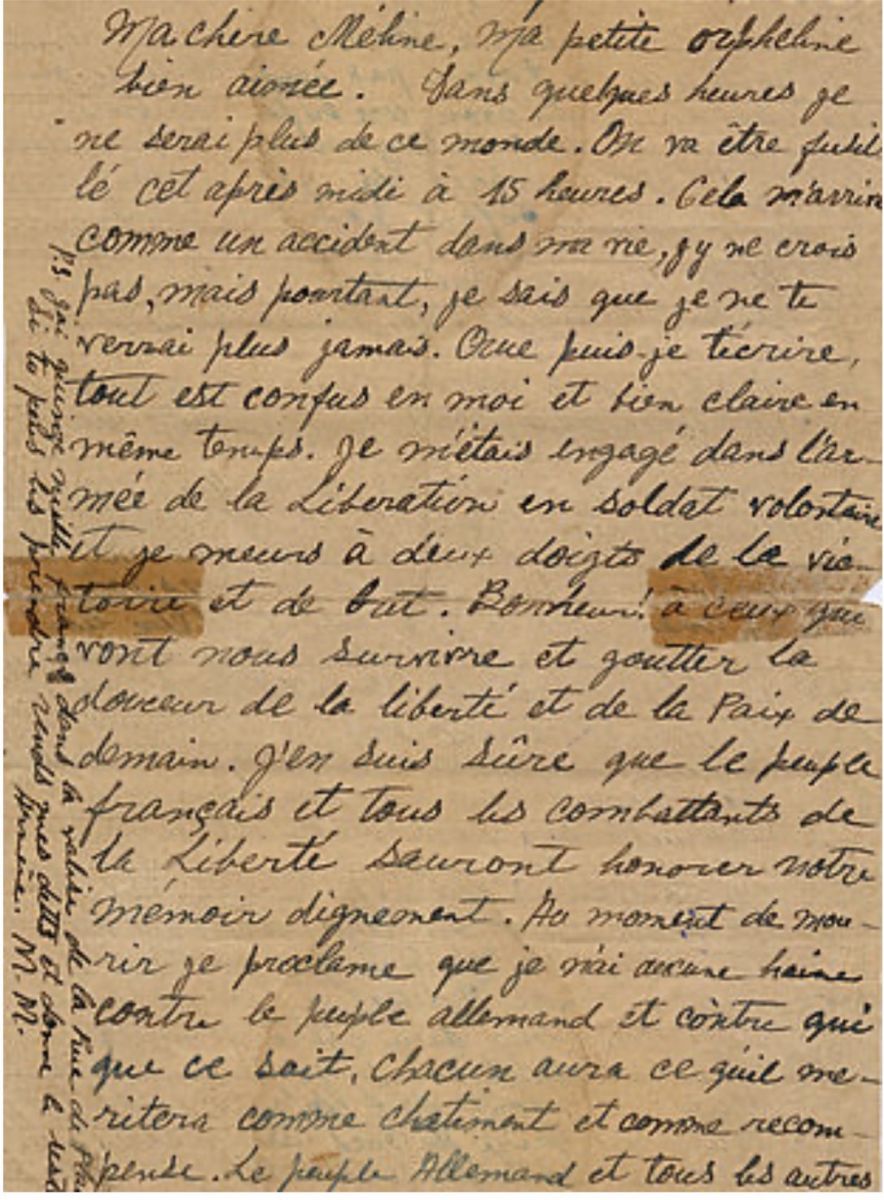 Ma chère Méline, ma petite orpheline
bien aimée. Dans quelques heures je
ne serai plus de ce monde. On va être fusil-
lé cet après midi à 15 heures. Cela m'arrive
comme un accident dans ma vie, j'y ne crois
pas, mais pourtant, je sais que je ne te
verrai plus jamais. Que puis-je t'écrire,
tout est confus en moi et bien claire en
même temps. Je m'étais engagé dans l'ar-
mée de la Libération en soldat volontaire
et je meurs à deux doigts de la vic-
toire et de but. Bonheur! à ceux qui
vont nous survivre et goutter la
douceur de la liberté et de la Paix de
demain. J'en suis sûre que le peuple
français et tous les combattants de
la Liberté sauront honorer notre
mémoir dignement. Au moment de mou-
rir je proclame que je n'ai aucune haine
contre le peuple allemand et contre qui
que ce soit, chacun aura ce qu'il me-
ritera comme chatiment et comme recom-
pense. Le peuple Allemand et tous les autres
P.S. J'ai quinze mille francs dans la valise de la rue de Plai
Si tu peus les prendre rends mes dettes et donne le reste
Armène. M. M.